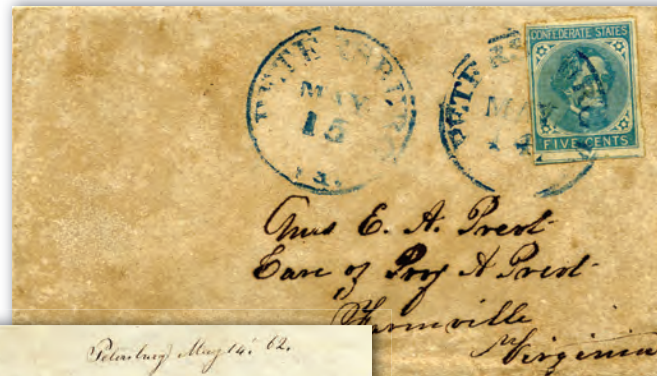 PETERSBURG
MAY
15
VA.
PETERSBURG
MAY
14
CONFEDERATE STATES
FIVE CENTS
E. A. Prest
Care of Prof A Prest
Farmville
Virginia
Petersburg May 14. 62.